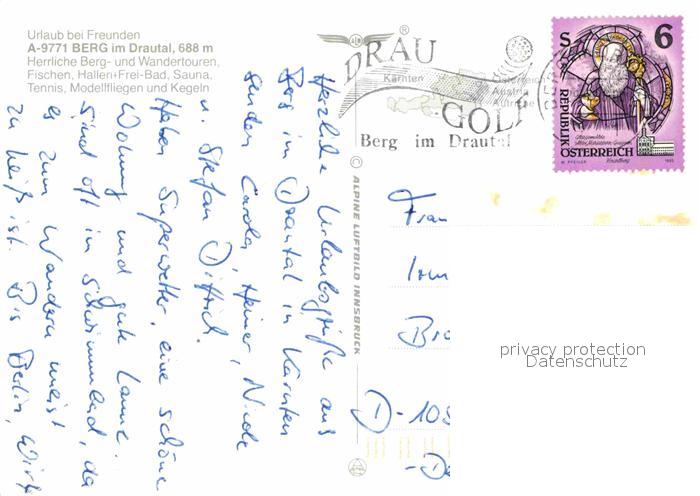 Urlaub bei Freunden
A-9771 BERG im Drautal, 688 m
Herrliche Berg- und Wandertouren,
Fischen, Hallen+Frei-Bad, Sauna,
Tennis, Modellfliegen und Kegeln
DRAU
Kärnten
Österreich
Austria
Autriche
GOLF
Berg im Drautal
S 6
REPUBLIK
ÖSTERREICH
© ALPINE LUFTBILD INNSBRUCK
Herzliche Urlaubsgrüße aus
Berg im Drautal in Kärnten
senden Carola, Heiner, Nicole
u. Stefan Dittrich.
Haben Superwetter, eine schöne
Wohnung und gute Laune.
Sind oft im Schwimmbad, da
es zum Wandern meist
zu heiß ist. Bis Berlin, 
Frau
D-10
privacy protection
Datenschutz